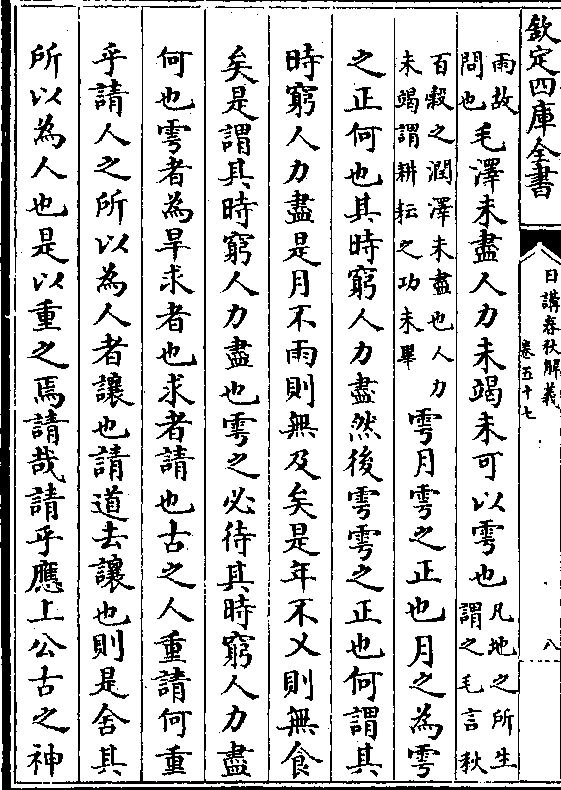 欽定四庫全書
日講春秋解義
卷五十七
八
雨故
問也
毛澤未盡人力未竭未可以雩也
凡地之所生
謂之毛言秋
百穀之潤澤未盡也人力
未竭謂耕耘之功未畢
雩月雩之正也月之為雩
之正何也其時窮人力盡然後雩雩之正也何謂其
時窮人力盡是月不雨則無及矣是年不乂則無食
矣是謂其時窮人力盡也雩之必待其時窮人力盡
何也雩者為旱求者也求者請也古之人重請何重
乎請人之所以為人者讓也請道去讓也則是舍其
所以為人也是以重之焉請哉請乎應上公古之神